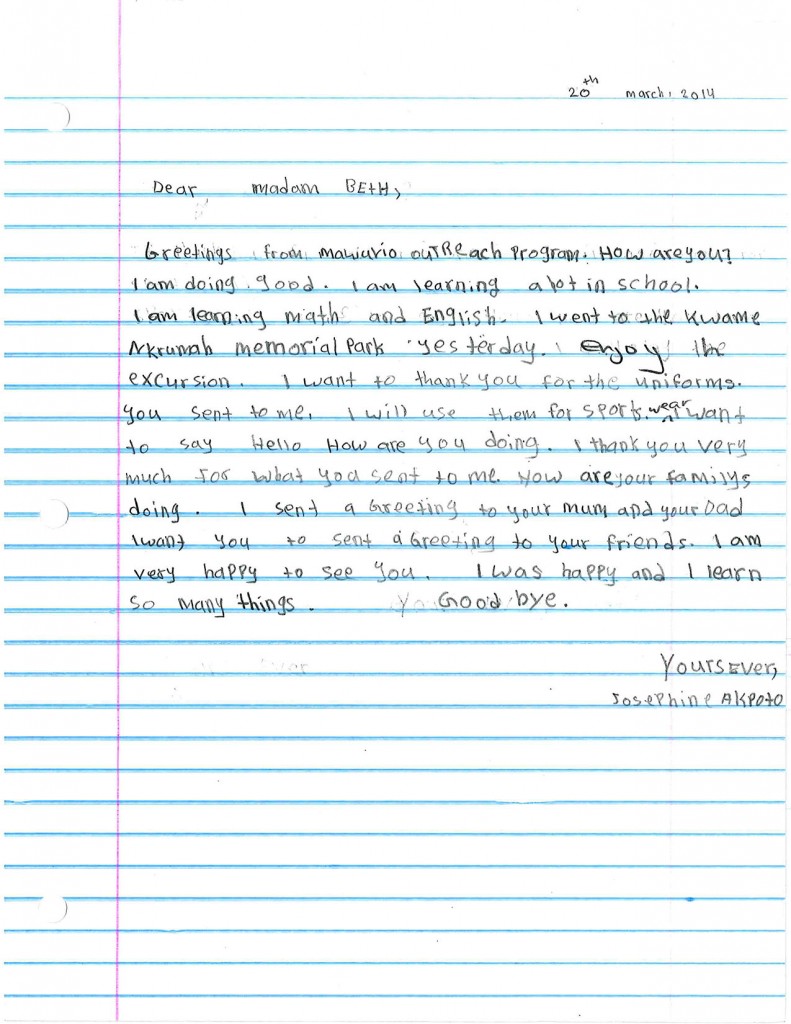 20th march, 2014
Dear madam BEtH,
Greetings from mawuvio outReach program. How are you?
I am doing good. I am learning a lot in school.
I am learning maths and English. I went to the Kwame
Nkrumah memorial Park yesterday. I enjoy the
excursion. I want to thank you for the uniforms.
you sent to me. I will use them for sports wear I want
to say Hello How are you doing. I thank you very
much for what you sent to me. How are your familys
doing. I sent a Greeting to your mum and your Dad
I want you to sent a Greeting to your friends. I am
very happy to see you. I was happy and I learn
so many things. Good bye.
Yours Ever,
Josephine AKPoto